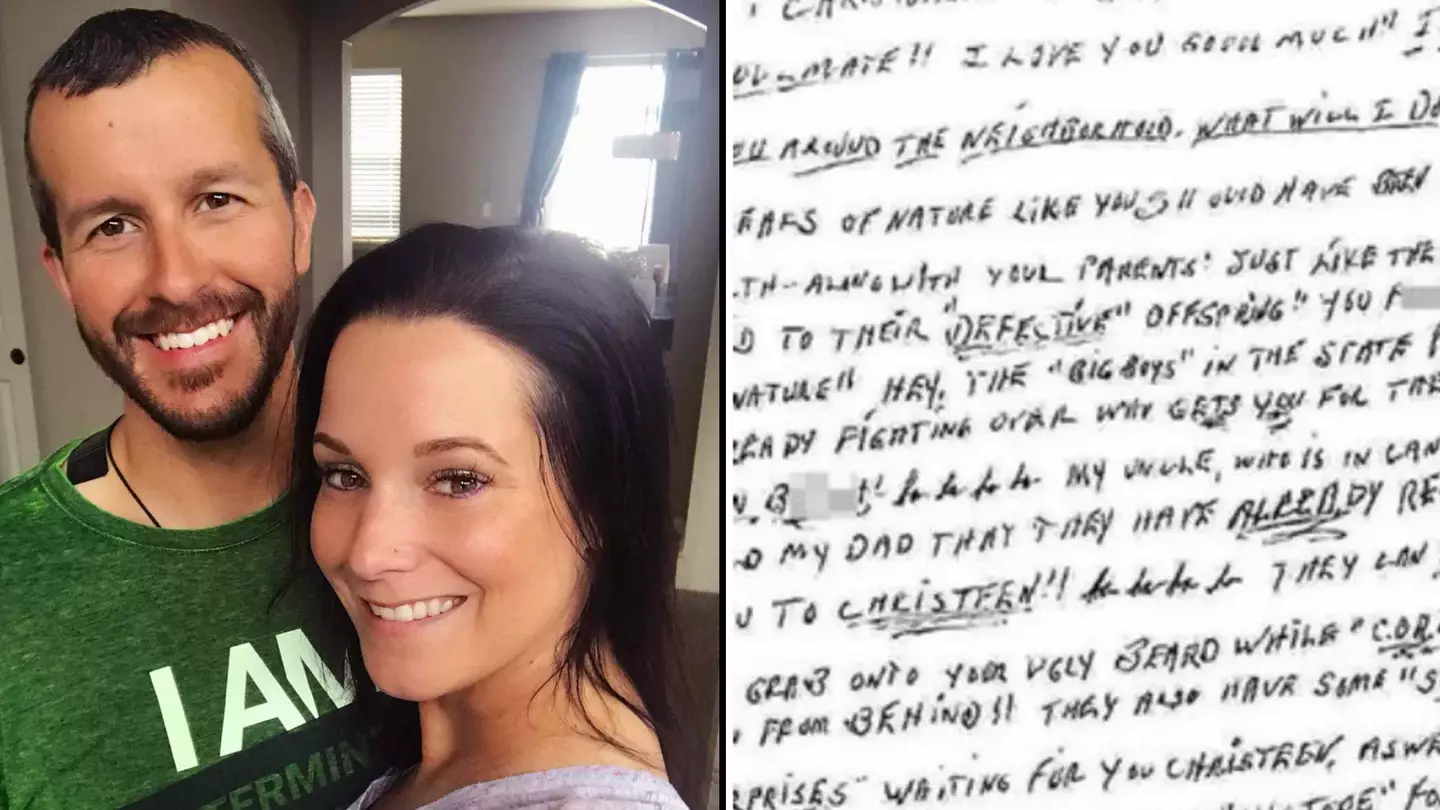 I AM
DETERMIN
MATE!! I LOVE YOU SOOOO MUCH" I
AROUND THE NEIGHBORHOOD. WHAT WILL I DO
OF NATURE LIKE YOU
ALONG WITH YOUR PARENTS! JUST LIKE THE
TO THEIR "DEFECTIVE" OFFSPRING" YOU F
NATURE" HEY, THE "BIG BOYS" IN THE STATE P
EADY FIGHTING OVER WHO GETS YOU FOR THE
B !" ha ha ha ha MY UNCLE, WHO IS IN
MY DAD THAT THEY HAVE ALREADY RE
U TO CHRISTEEN!! ha ha ha ha THEY CAN
GRAB ONTO YOUR UGLY BEARD WHILE "COR
FROM BEHIND!! THEY ALSO HAVE SOME "S
PRISES" WAITING FOR YOU CHRISTEEN, AS WE